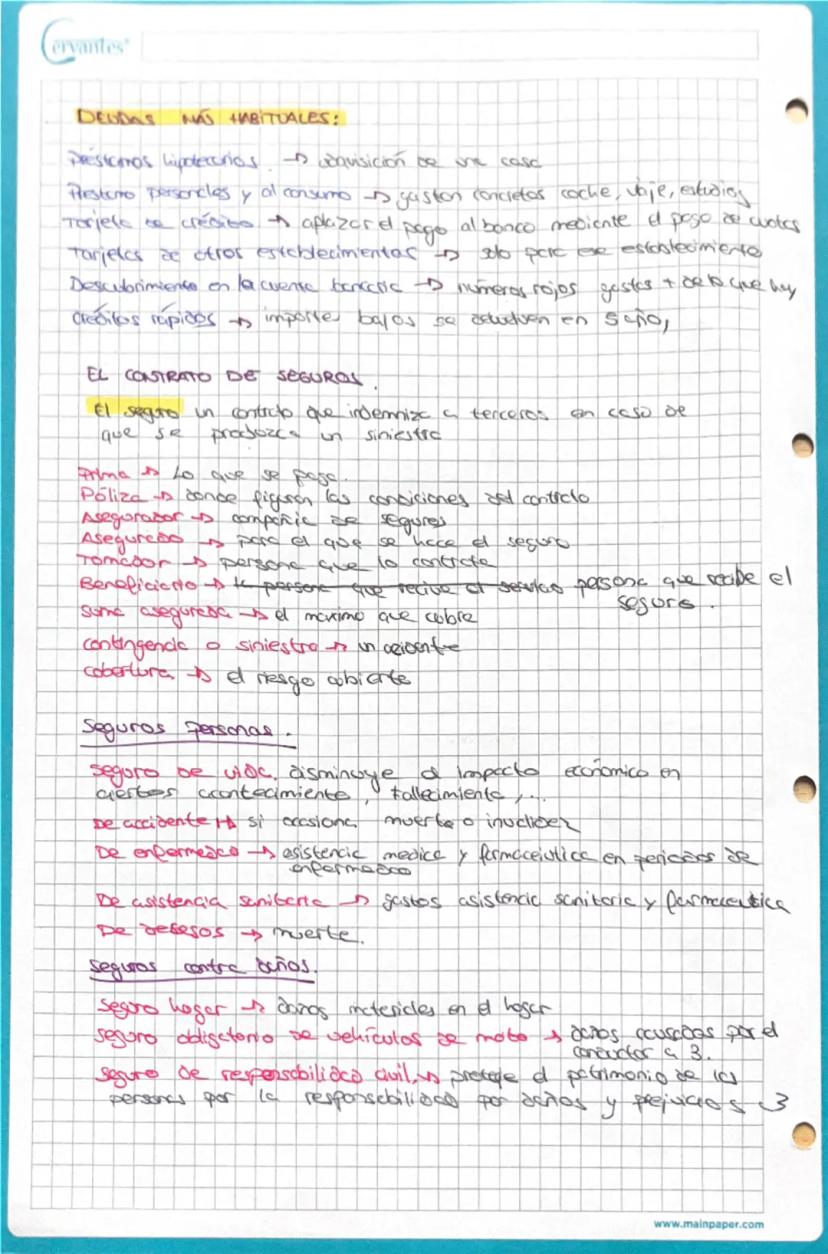 Cervantes®
DEUDAS MÁS HABITUALES:
Préstamos hipotecarios. → adquisición de una casa
Préstamo personales y al consumo → gaston concretos coche, viaje, estudios
Tarjeta de crédito → aplazar el pago al banco mediante el pago de cuotas
Tarjetas de otros establecimientos → solo para ese establecimiento
Descubrimiento en la cuenta bancaria → números rojos gastas + de lo que hay
Créditos rápidos → importe bajos se devuelven en 5 año,
EL CONTRATO DE SEGUROS.
El seguro un contrato que indemniza a terceros en caso de
que se produzca un siniestro
Prima → Lo que se paga.
Póliza → donde figuran las condiciones del contrato
Asegurador → compañia de seguros
Asegurado → para el que se hace el seguro
Tomador → persona que lo contrata
Beneficiario → la persona que recive el servicio persona que recibe el
seguro.
Suma asegurada → el maximo que cobra
contingencia o siniestro → un accidente
cobertura → el riesgo cubierto
Seguros personas.
Seguro de vida, disminuye el impacto económico en
ciertos acontecimiento, fallecimiento,...
De accidente → si ocasiona muerte o invalidez
De enfermedad → asistencia medica y farmaceiutica en periodos de
enfermedad
De asistencia sanitaria → gastos asistencia sanitaria y farmaceutica
De decesos → muerte.
Seguros contra daños.
Seguro hogar → daños materiales en el hogar
seguro obligatorio de vehículos de moto → daños causados por el
conductor a 3.
Seguro de responsabilidad civil, → proteje el patrimonio de las
personas por la responsabilidad por daños y prejuicios 3
www.mainpaper.com